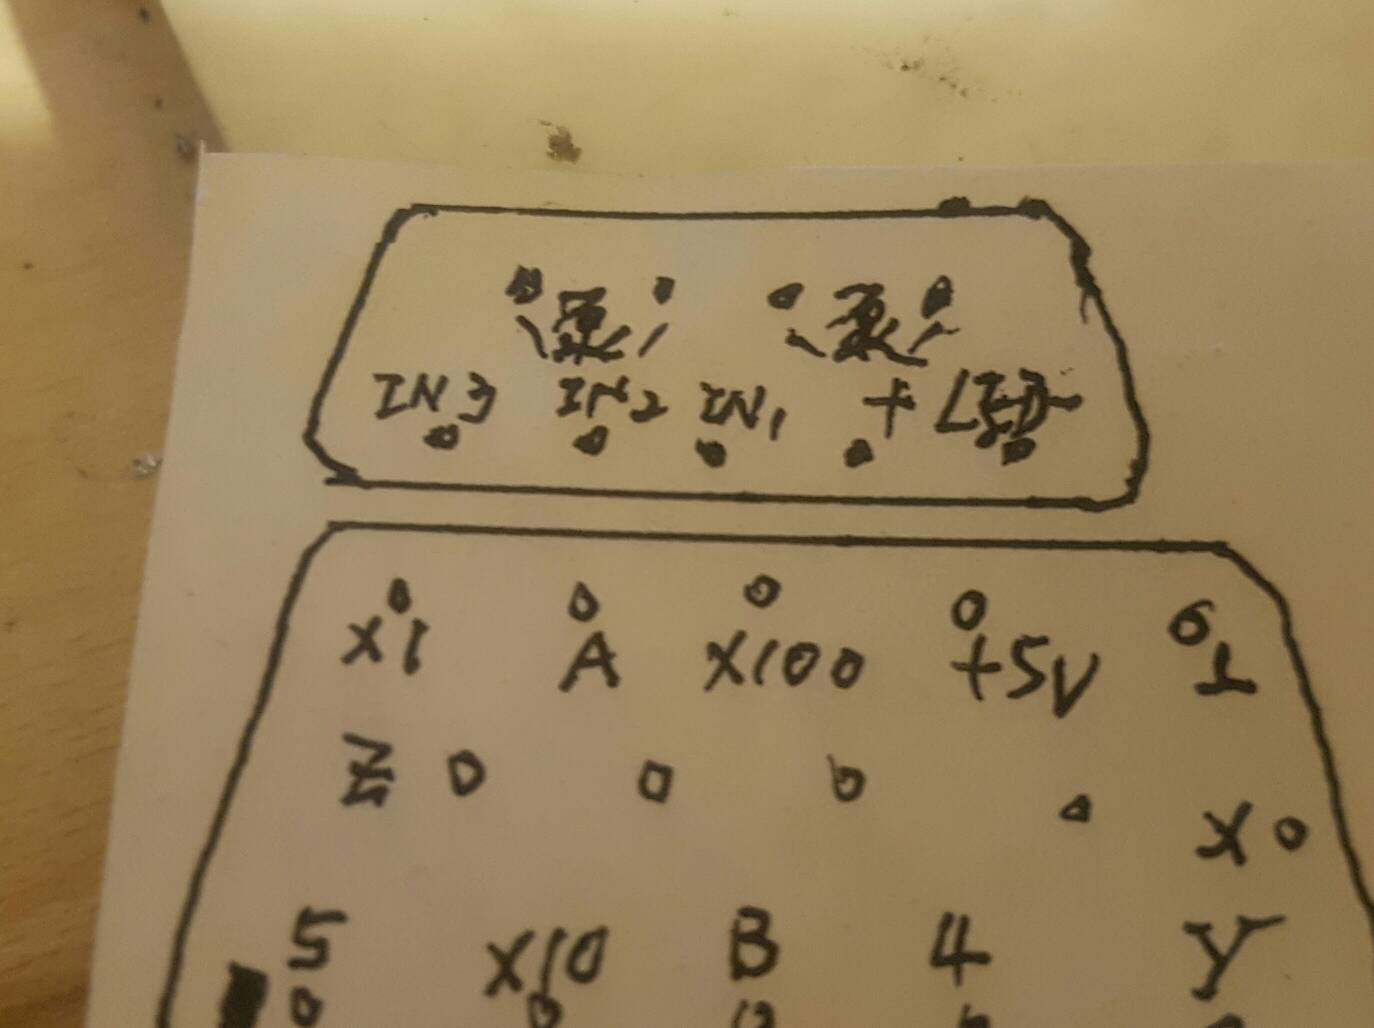 IN3 IN2 IN1 + LED-
X1 A X100 +5V
Z X
5 X10 B 4 Y